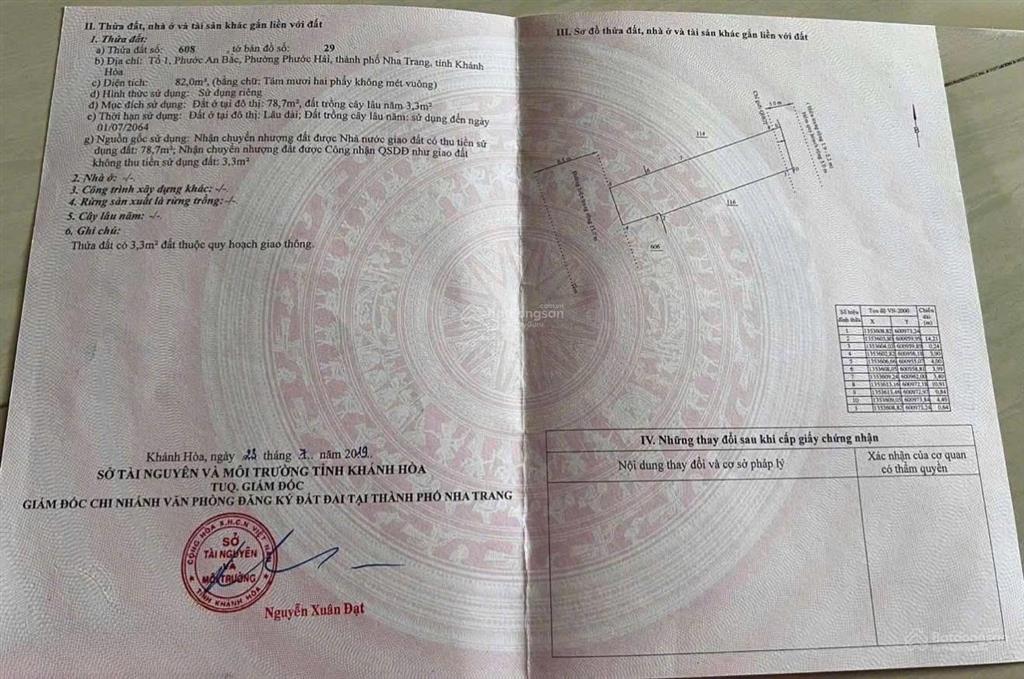 II. Thửa đất, nhà ở và tài sản khác gắn liền với đất
1. Thửa đất:
a) Thửa đất số: 608 , tờ bản đồ số: 29
b) Địa chỉ: Tổ 1, Phước An Bắc, Phường Phước Hải, thành phố Nha Trang, tỉnh Khánh
Hòa
c) Diện tích: 82,0m², (bằng chữ: Tám mươi hai phẩy không mét vuông)
d) Hình thức sử dụng: Sử dụng riêng
đ) Mục đích sử dụng: Đất ở tại đô thị: 78,7m², đất trồng cây lâu năm 3,3m²
e) Thời hạn sử dụng: Đất ở tại đô thị: Lâu dài; Đất trồng cây lâu năm: sử dụng đến ngày
01/07/2064
g) Nguồn gốc sử dụng: Nhận chuyển nhượng đất được Nhà nước giao đất có thu tiền sử
dụng đất: 78,7m²; Nhận chuyển nhượng đất được Công nhận QSDĐ như giao đất
không thu tiền sử dụng đất: 3,3m²
2. Nhà ở: -/-
3. Công trình xây dựng khác: -/-
4. Rừng sản xuất là rừng trồng: -/-
5. Cây lâu năm: -/-
6. Ghi chú:
Thửa đất có 3,3m² đất thuộc quy hoạch giao thông.
Khánh Hòa, ngày 23 tháng 7 năm 2019
SỞ TÀI NGUYÊN VÀ MÔI TRƯỜNG TỈNH KHÁNH HÒA
TUQ. GIÁM ĐỐC
GIÁM ĐỐC CHI NHÁNH VĂN PHÒNG ĐĂNG KÝ ĐẤT ĐAI TẠI THÀNH PHỐ NHA TRANG
CỘNG HÒA X.H.C.N VIỆT NAM
SỞ
TÀI NGUYÊN
VÀ
MÔI TRƯỜNG
TỈNH KHÁNH HÒA
Nguyễn Xuân Đạt
III. Sơ đồ thửa đất, nhà ở và tài sản khác gắn liền với đất
B
114
116
606
Số hiệu đỉnh thửa Tọa độ VN-2000 Chiều dài (m)
X Y
1 1353608,82 600973,24
2 14,21
3 0,24
4 3,90
5 4,00
6 3,99
7 3,40
8 10,91
9 0,84
10 4,49
1 1353608,82 600973,24 0,64
IV. Những thay đổi sau khi cấp giấy chứng nhận
Nội dung thay đổi và cơ sở pháp lý
Xác nhận của cơ quan
có thẩm quyền
Batdongsan
Batdongsan